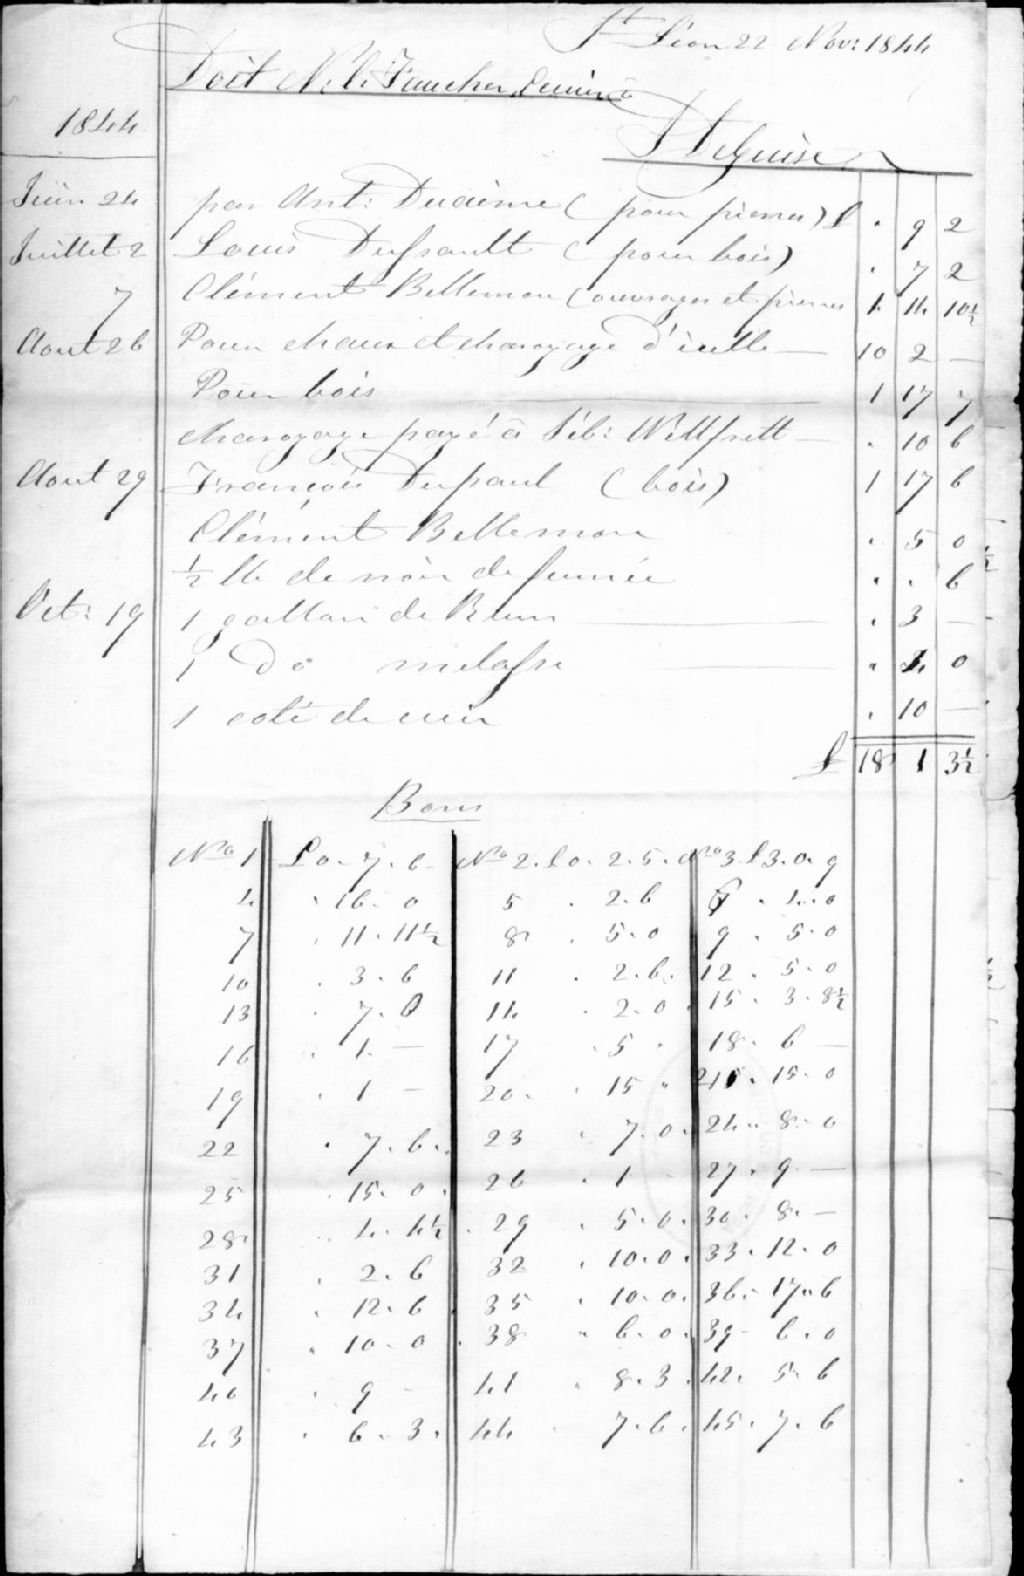 St Léon 22 Nov: 1844
Doit Mr. L. Faucher Ecuier à
1844
J Deguise
Juin 24 par Ant: Ducième ( pour pierres ) £ . 9 2
Juillet 2 Louis Dufrault ( pour bois ) . 7 2
7 Clément Bellemare ( ouvrages et pierres 1. 14. 10½
Aout 26 Pour chaux et charoyage d'icelle — 10 2 —
Pour bois — 1 17 7
charoyage payé à Séb: Willfrett — . 10 6
Aout 29 François Dupaul ( bois ) 1 17 6
Clément Bellemare . 5 0
½ lb de noir de fumée . . 6
Oct: 19 1 gallon de Rum — . 3 —
1 do melasse — . 4. 0
1 coté de cuir . 10 —
£ 18 1 3½
Bons
No 1 £ 0. 7. 6 No 2. £ 0. 2. 5. No 3 £ 3. 0. 9
4 . 16. 0 5 . 2. 6 6 . 4. 0
7 . 11. 11½ 8 . 5. 0 9 . 5. 0
10 . 3. 6 11 . 2. 6. 12 . 5. 0
13 . 7. 6 14 . 2. 0 . 15 . 3. 8½
16 . 1. — 17 . 5 . 18. 6 —
19 . 1 — 20. . 15 . 21 . 15. 0
22 . 7. 6. 23 . 7. 0. 24. 8. 0
25 . 15. 0. 26 . 1 — 27. 9 —
28 . 4. 4½. 29 . 5. 0. 30. 8. —
31 . 2. 6 32 . 10. 0. 33. 12. 0
34 . 12. 6 35 . 10. 0. 36. 17. 6
37 . 10. 0 . 38 . 6. 0. 39 - 6. 0
40 . 9 - 41 . 8. 3. 42. 5. 6
43 . 6. 3. 44 . 7. 6. 45. 7. 6